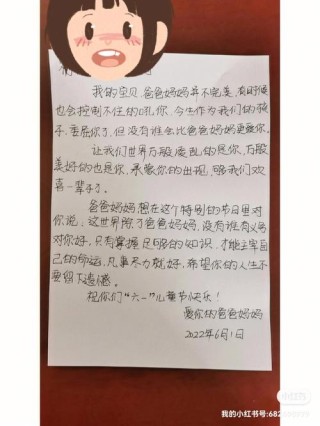 我的宝贝,爸爸妈妈并不完美,有时候
也会控制不住的吼你,今生作为我们的孩
子,委屈你了,但没有谁会比爸爸妈妈更爱你。
让我们世界万般凌乱的是你,万般
美好的也是你,承蒙你的出现,够我们欢
喜一辈子了。
爸爸妈妈想在这个特别的节日里对
你说,这世界除了爸爸妈妈,没有谁有义务
对你好,只有掌握足够的知识,才能主宰自
己的命运,凡事尽力就好,希望你的人生不
要留下遗憾。
祝你们“六一”儿童节快乐!
爱你的爸爸妈妈
2022年6月1日
小红书
我的小红书号:682